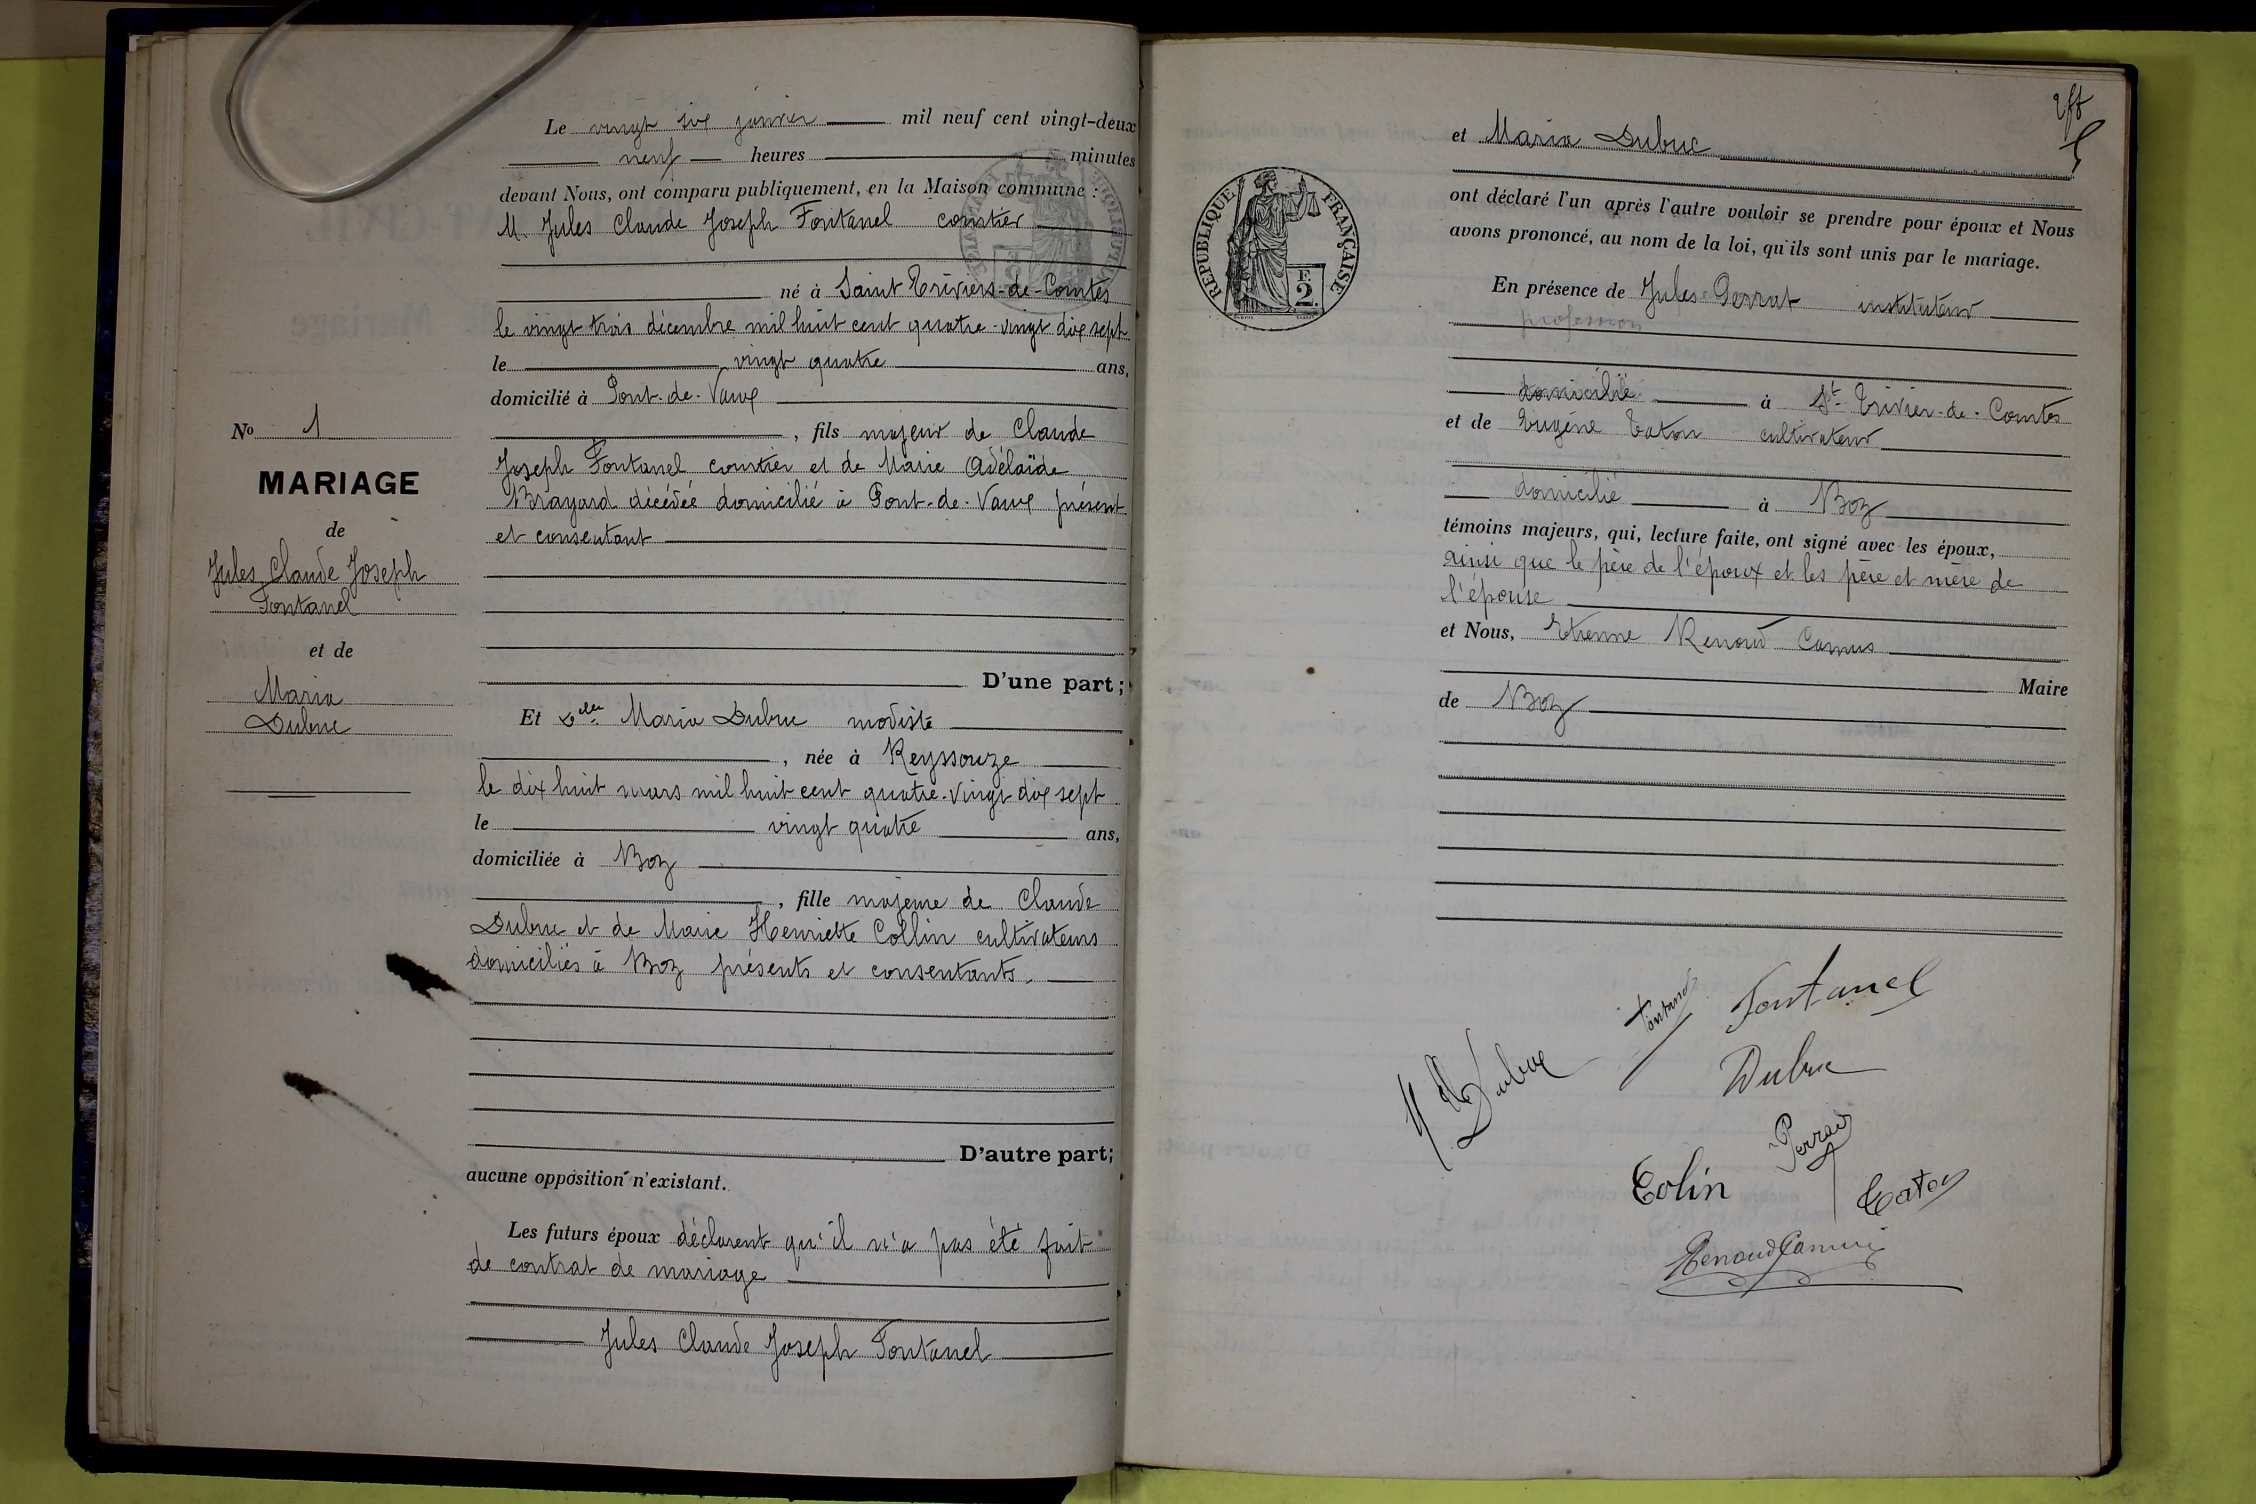 Le vingt six janvier mil neuf cent vingt-deux
neuf heures minutes
devant Nous, ont comparu publiquement, en la Maison commune :
M. Jules Claude Joseph Fontanel courtier
né à Saint Triviers-de-Courtes
le vingt trois décembre mil huit cent quatre-vingt dix sept
le vingt quatre ans,
domicilié à Pont-de-Vaux
, fils majeur de Claude
Joseph Fontanel courtier et de Marie Adélaïde
Brayard décédée domicilié à Pont-de-Vaux présent
et consentant
D'une part;
Et Delle Maria Dubuc modiste
, née à Reyssouze
le dix huit mars mil huit cent quatre-vingt dix sept
le vingt quatre ans,
domiciliée à Boz
, fille majeure de Claude
Dubuc et de Marie Henriette Collin cultivateurs
domiciliés à Boz présents et consentants.
D'autre part;
aucune opposition n'existant.
Les futurs époux déclarent qu'il n'a pas été fait
de contrat de mariage
Jules Claude Joseph Fontanel
No 1
MARIAGE
de
Jules Claude Joseph
Fontanel
et de
Maria
Dubuc
et Maria Dubuc
ont déclaré l'un après l'autre vouloir se prendre pour époux et Nous
avons prononcé, au nom de la loi, qu'ils sont unis par le mariage.
RÉPUBLIQUE FRANÇAISE
F.
2
En présence de Jules Perrat instituteur
profession
domicilié à St Trivier-de-Courtes
et de Eugène Caton cultivateur
domicilié à Boz
témoins majeurs, qui, lecture faite, ont signé avec les époux,
ainsi que le père de l'époux et les père et mère de
l'épouse
et Nous, Etienne Renoud Camus
Maire
de Boz
Fontanel
Fontanel
M Dubuc
Dubuc
Perrat
Colin
Caton
Renoud Camus